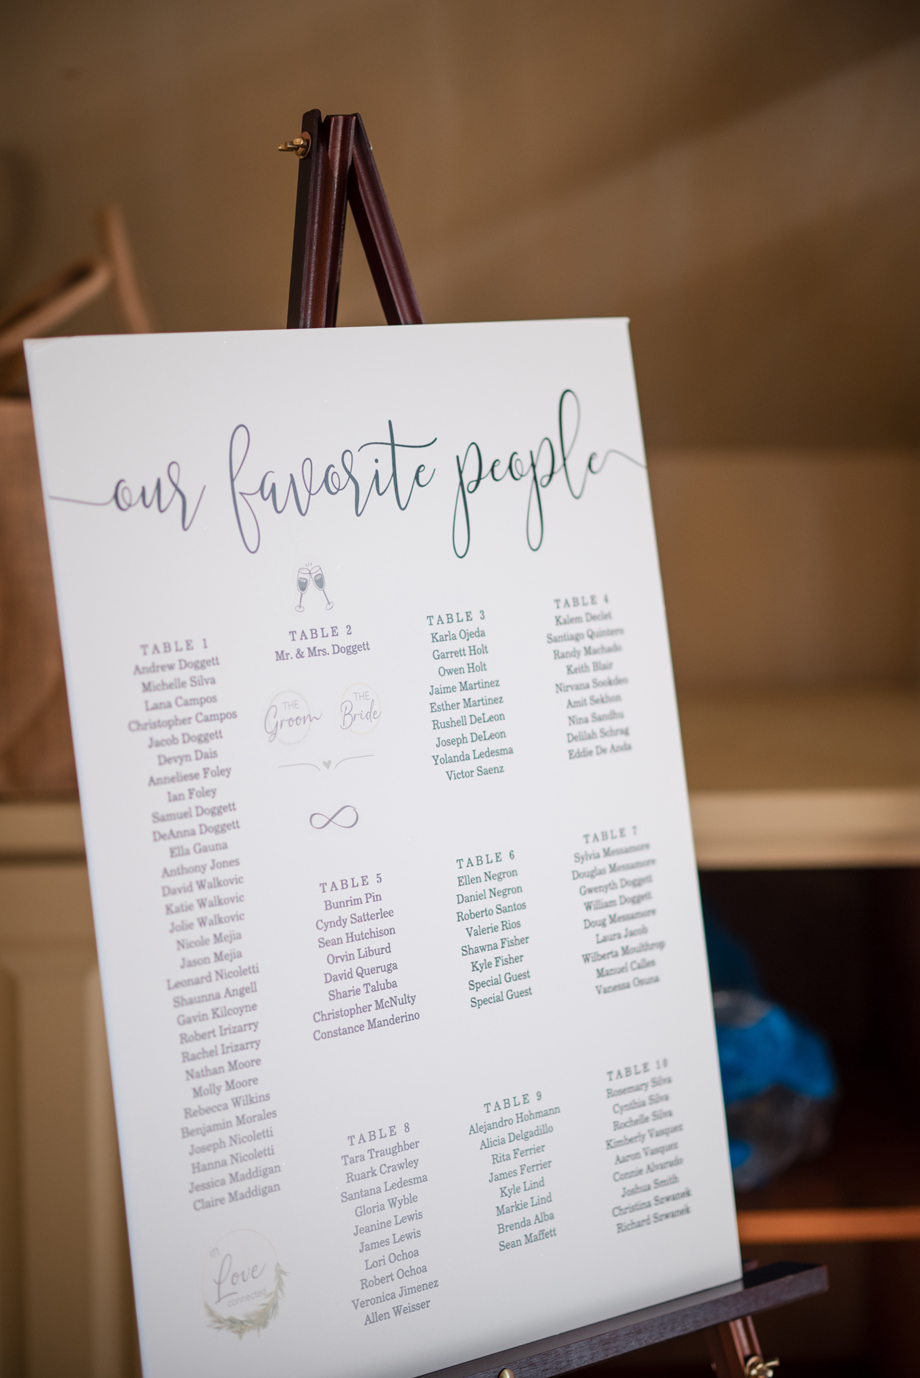 our favorite people
TABLE 1
Andrew Doggett
Michelle Silva
Lana Campos
Christopher Campos
Jacob Doggett
Devyn Dais
Anneliese Foley
Ian Foley
Samuel Doggett
DeAnna Doggett
Ella Gauna
Anthony Jones
David Walkovic
Katie Walkovic
Jolie Walkovic
Nicole Mejia
Jason Mejia
Leonard Nicoletti
Shaunna Angell
Gavin Kilcoyne
Robert Irizarry
Rachel Irizarry
Nathan Moore
Molly Moore
Rebecca Wilkins
Benjamin Morales
Joseph Nicoletti
Hanna Nicoletti
Jessica Maddigan
Claire Maddigan
in
Love
connected
TABLE 2
Mr. & Mrs. Doggett
THE
Groom
THE
Bride
TABLE 3
Karla Ojeda
Garrett Holt
Owen Holt
Jaime Martinez
Esther Martinez
Rushell DeLeon
Joseph DeLeon
Yolanda Ledesma
Victor Saenz
TABLE 4
Kalem Declet
Santiago Quintero
Randy Machado
Keith Blair
Nirvana Sookdeo
Amit Sekhon
Nina Sandhu
Delilah Schrag
Eddie De Anda
TABLE 5
Bunrim Pin
Cyndy Satterlee
Sean Hutchison
Orvin Liburd
David Queruga
Sharie Taluba
Christopher McNulty
Constance Manderino
TABLE 6
Ellen Negron
Daniel Negron
Roberto Santos
Valerie Rios
Shawna Fisher
Kyle Fisher
Special Guest
Special Guest
TABLE 7
Sylvia Messamore
Douglas Messamore
Gwenyth Doggett
William Doggett
Doug Messamore
Laura Jacob
Wilberta Moulthrop
Manuel Calles
Vanessa Osuna
TABLE 8
Tara Traughber
Ruark Crawley
Santana Ledesma
Gloria Wyble
Jeanine Lewis
James Lewis
Lori Ochoa
Robert Ochoa
Veronica Jimenez
Allen Weisser
TABLE 9
Alejandro Hohmann
Alicia Delgadillo
Rita Ferrier
James Ferrier
Kyle Lind
Markie Lind
Brenda Alba
Sean Maffett
TABLE 10
Rosemary Silva
Cynthia Silva
Rochelle Silva
Kimberly Vasquez
Aaron Vasquez
Connie Alvarado
Joshua Smith
Christina Szwanek
Richard Szwanek